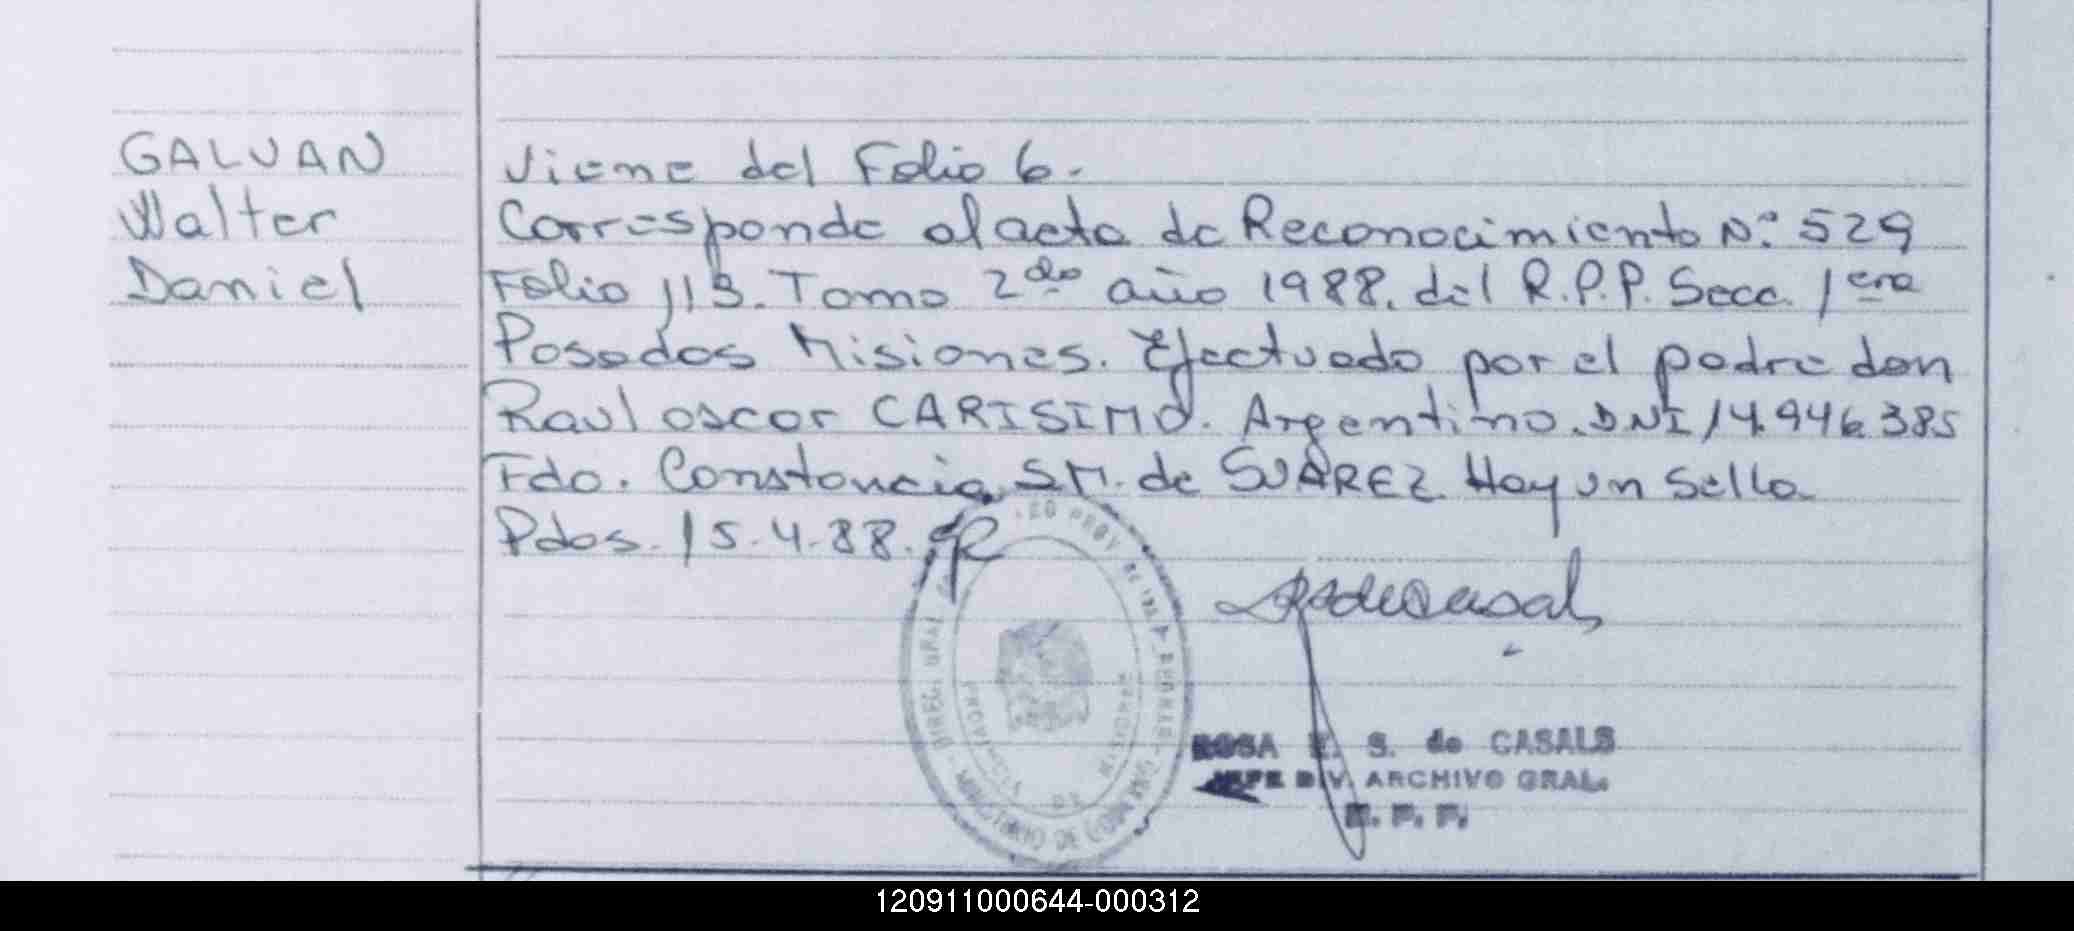 GALVAN
Walter
Daniel
Viene del Folio 6.
Corresponde al acta de Reconocimiento N° 529
Folio 113. Tomo 2do año 1988. del R.P.P. Secc. 1era
Posadas Misiones. Efectuado por el padre don
Raul oscar CARISIMO. Argentino. DNI 14.946.385
Fdo. Constancia S.M. de SUAREZ Hay un Sello
Pdas. 15.4.88.
ROSA S. de CASALS
JEFE DIV. ARCHIVO GRAL.
R. P. P.
120911000644-000312